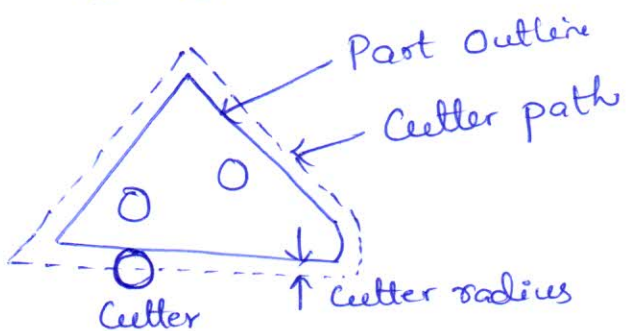 Part Outline
Cutter path
Cutter radius
Cutter